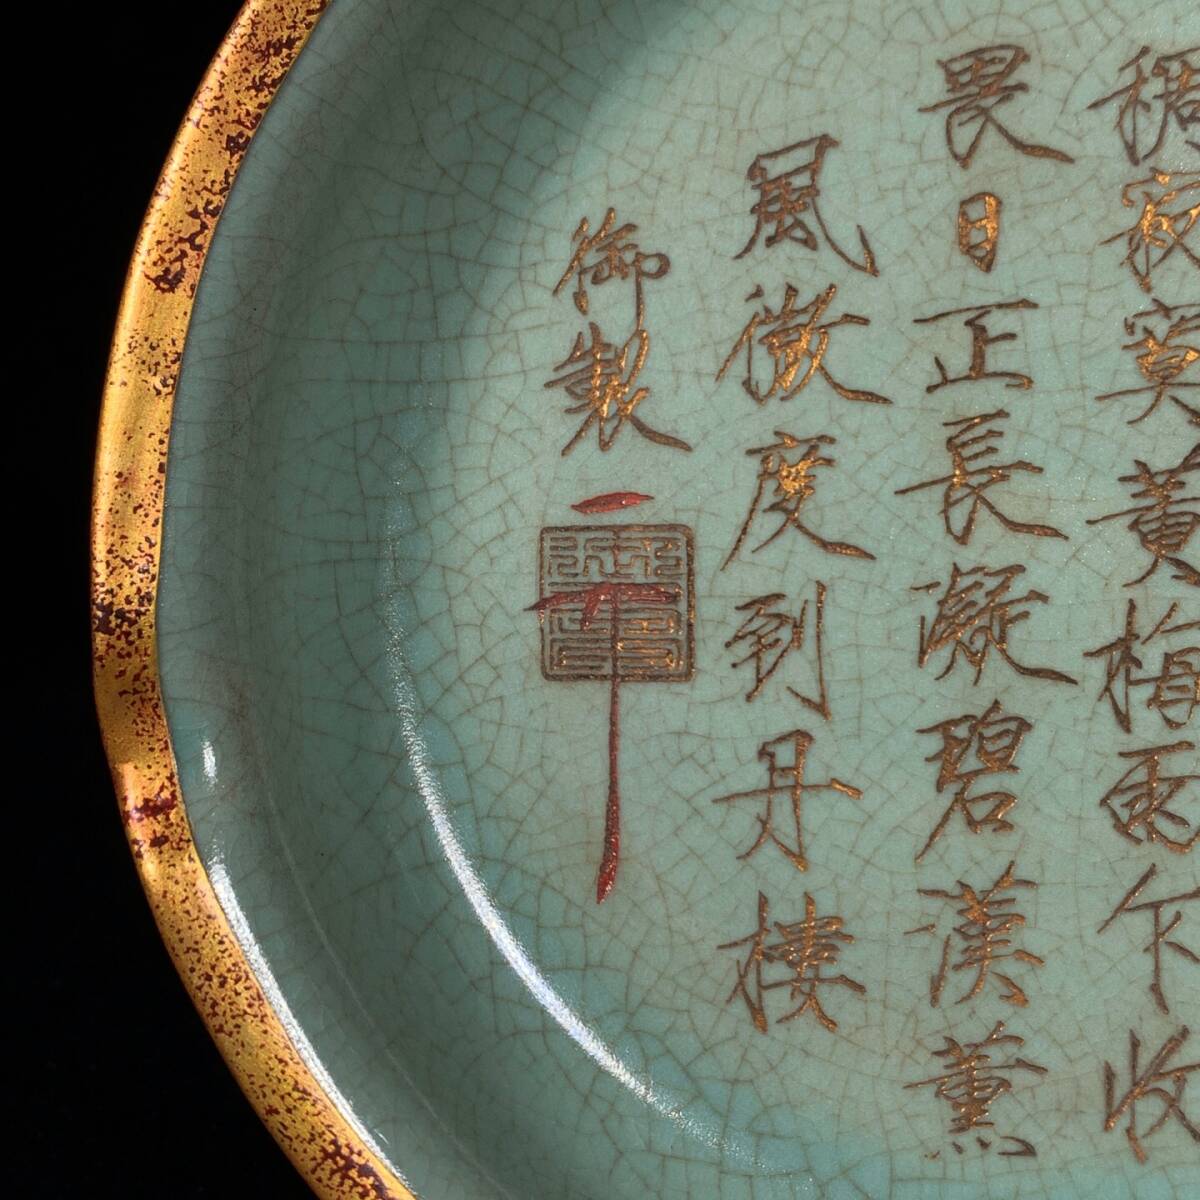 稠寂寞黃梅雨乍收
畏日正長凝碧漢薰
風微度到丹樓
御製